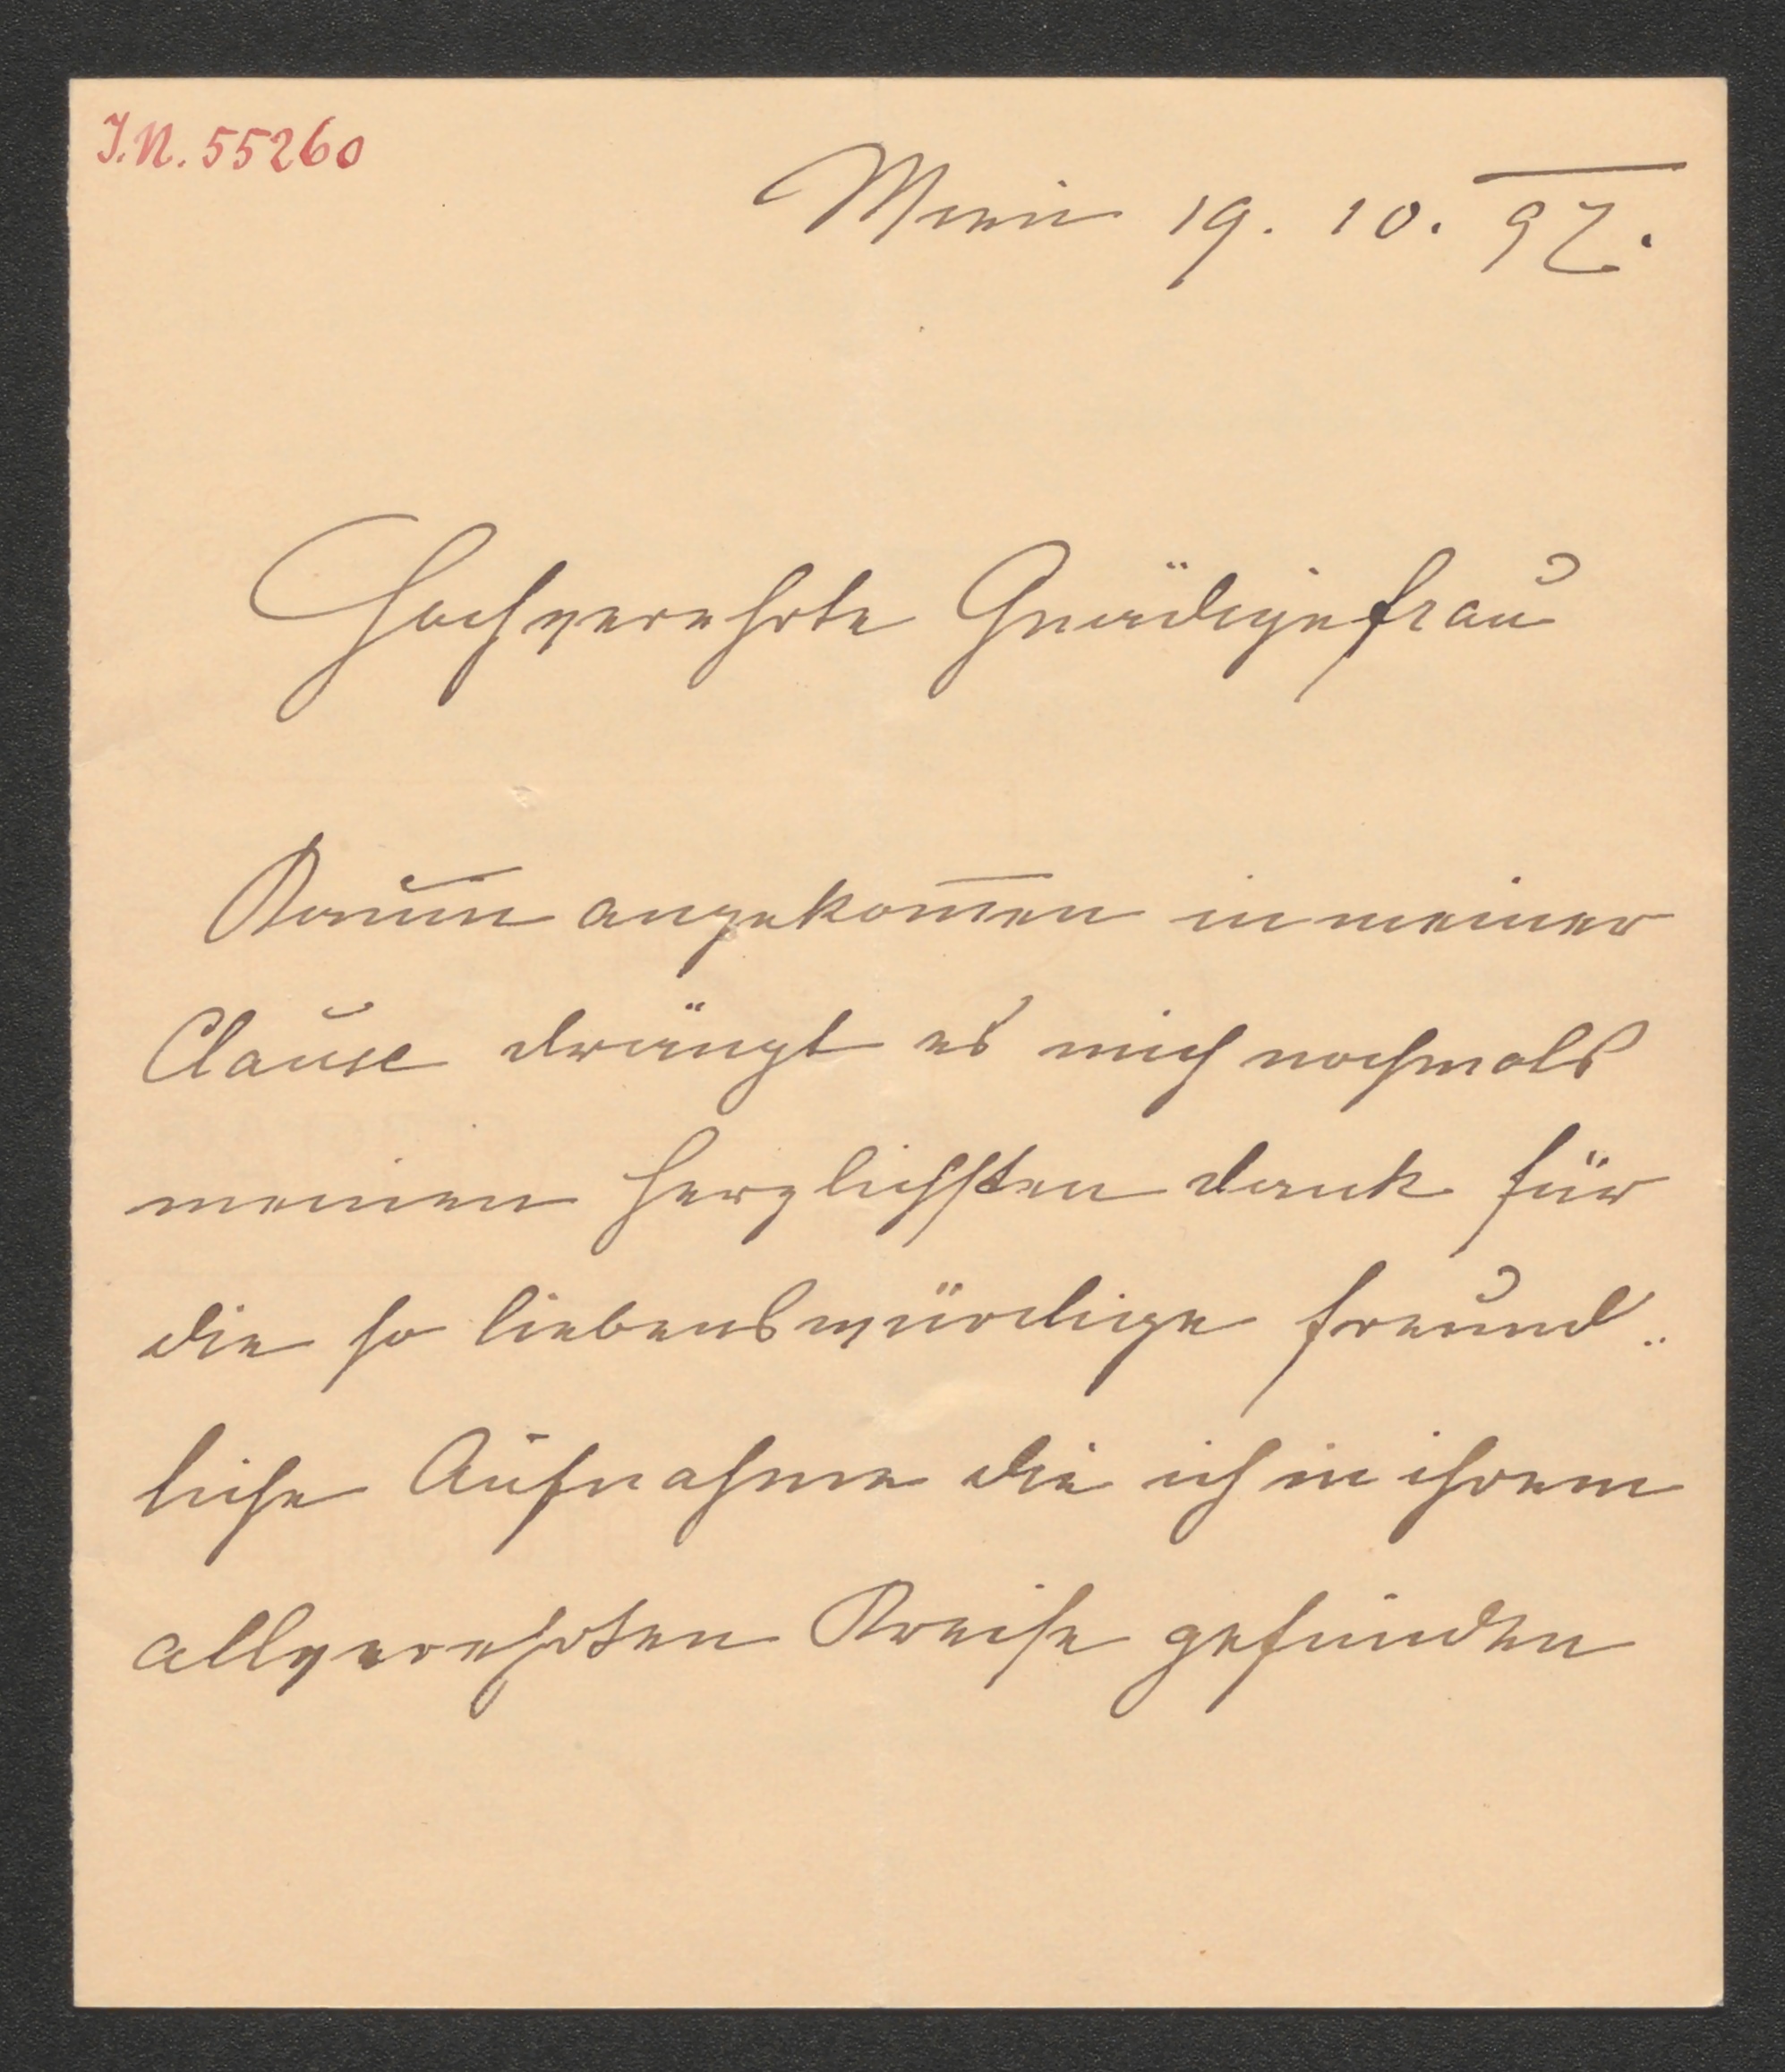 I.N. 55260
Wien 19. 10. 97.
Hochverehrte Gnädigefrau
Kaum angekom̅en in meiner
Clause drängt es mich nochmals
meinen herzlichsten dank für
die so liebenswürdige freund¨
liche Aufnahme die ich in ihrem
allverehrten Kreise gefunden